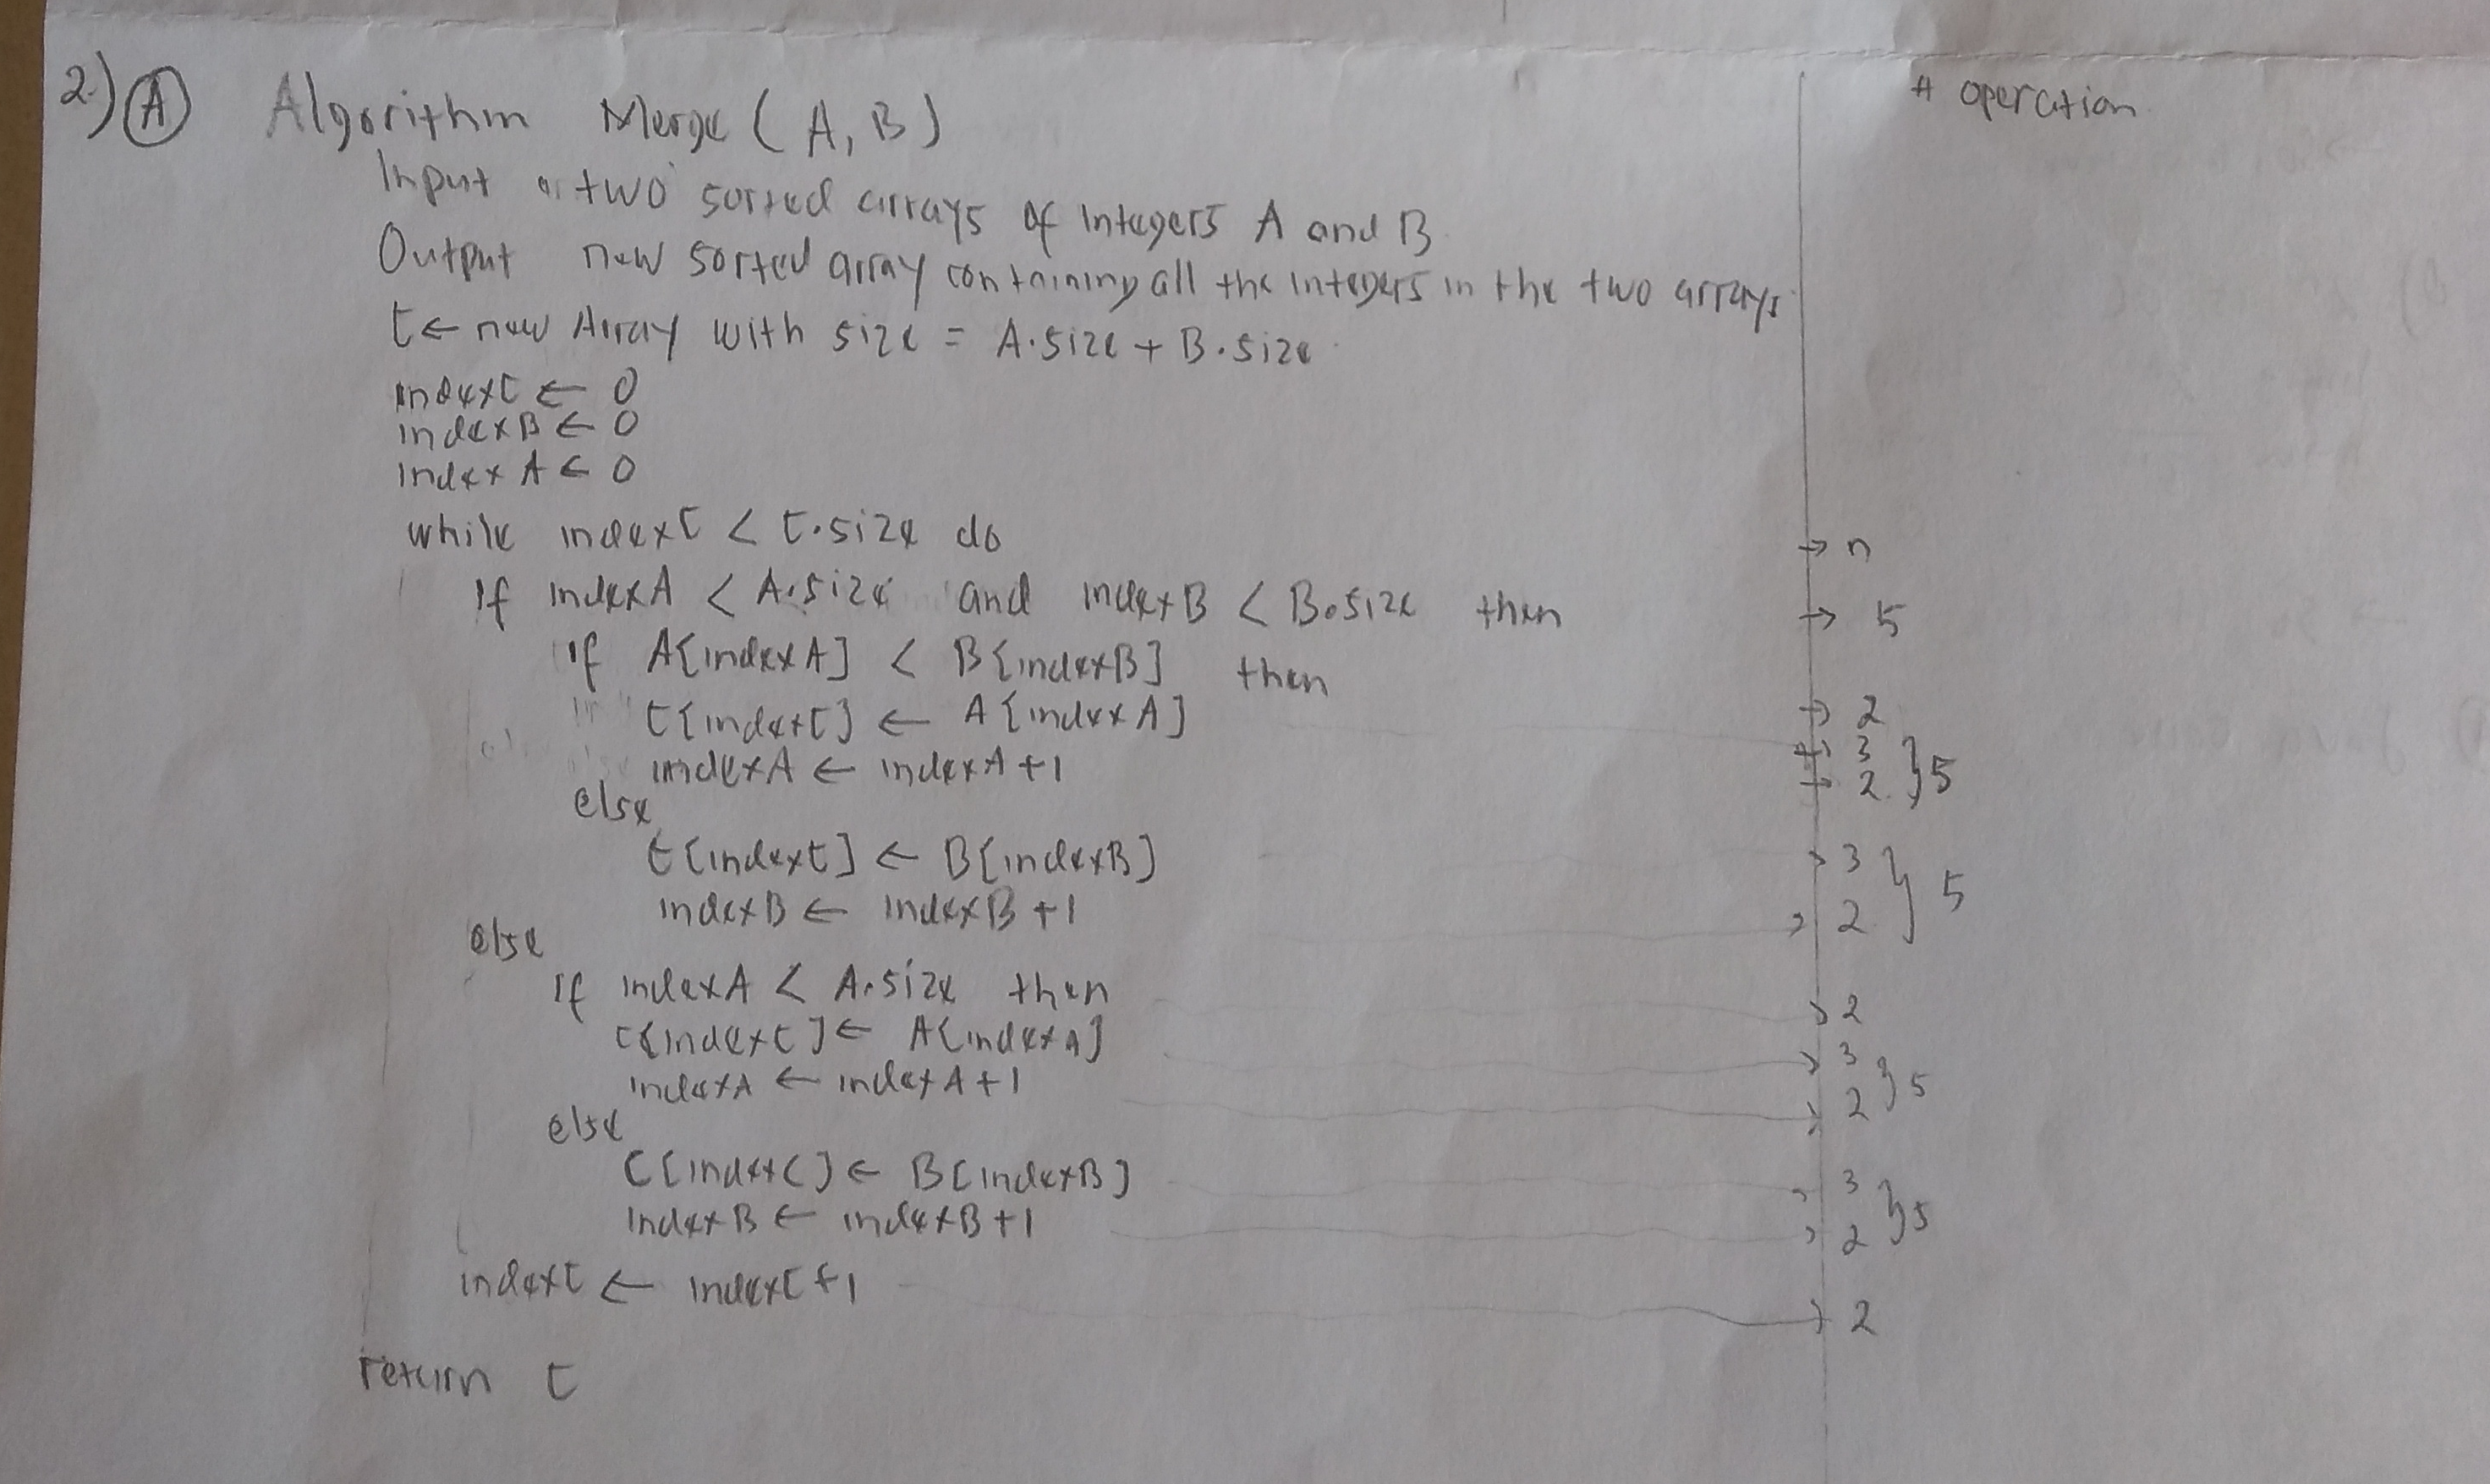 2.) A Algorithm Merge (A, B) # operation
Input two sorted arrays of integers A and B
Output new sorted array containing all the integers in the two arrays
C ← new Array with size = A.size + B.size
indexC ← 0
indexB ← 0
indexA ← 0
while indexC < C.size do → n
If indexA < A.size and indexB < B.size then → 5
if A[indexA] < B[indexB] then → 2
C[indexC] ← A[indexA] → 3
indexA ← indexA + 1 → 2 } 5
else
C[indexC] ← B[indexB] → 3
indexB ← indexB + 1 → 2 } 5
else
If indexA < A.size then → 2
C[indexC] ← A[indexA] → 3
indexA ← indexA + 1 → 2 } 5
else
C[indexC] ← B[indexB] → 3
indexB ← indexB + 1 → 2 } 5
indexC ← indexC + 1 → 2
return C